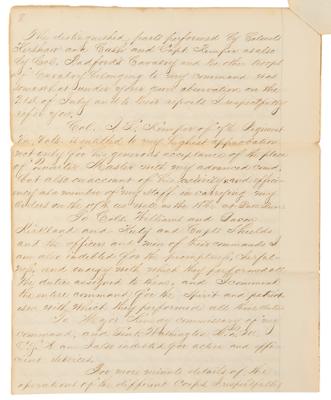 8
The distinguished parts performed by Colonels
Kershaw and Cash and Capt. Kemper as also
by Col. Radford's Cavalry and the other troops
of Cavalry belonging to my command was
somewhat under your own observation on the
21st of July and to their reports I respectfully
refer you.
Col. J. L. Kemper of 7th Regiment
Va. Vols. is entitled to my highest approbation
not only for his generous acceptance of the place
of Quarter Master with my advanced
but also on account of his activity and effici-
ency as a member of my staff in carrying my
orders on the 17th as well as the 18th at
To Cols. Williams and
Kirkland and and Capts Shields
and the officers and men of their commands I
am also indebted for the promptness,
ness and energy with which they performed all
the duties assigned to them, and I commend
the entire command for the spirit and patriot-
ism with which they performed all their duties
To Major commissary of my
command, and Lieut. Washington
I am also indebted for active and effi-
cient services.
For more minute details of the
operations of the different Corps I respectfully